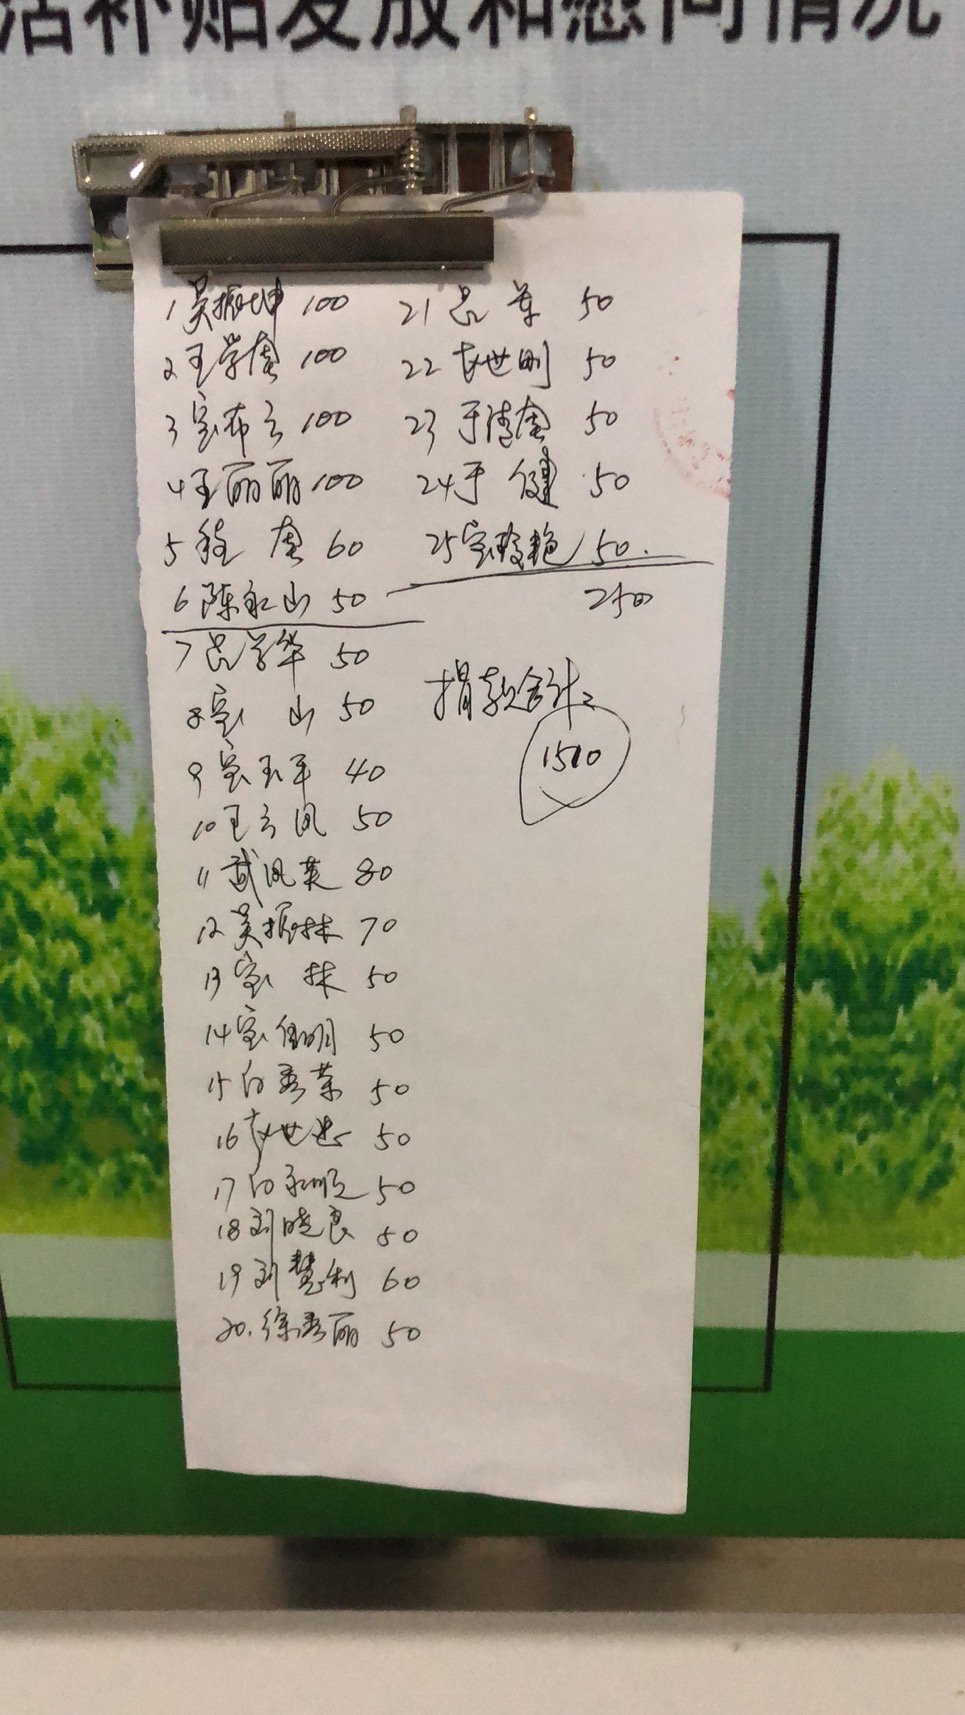 活补贴发放和慰问情况
1 吴振坤 100
2 王学
3 宝布云 100
4 王丽丽 100
5 程 60
6 陈永山 50
7 吕学华 50
8 宝 山 50
9 宝玉平 40
10 王云凤 50
11 武凤英 80
12 吴振林 70
13 宝 林 50
14 宝 明 50
15 白秀荣 50
16 世 50
17 白永顺 50
18 刘晓良 50
19 刘慧利 60
20. 徐秀丽 50
21 吕 50
22 世刚 50
23 于清 50
24 于 健 50
25 宝 艳 50.
250
捐款合计:
1510